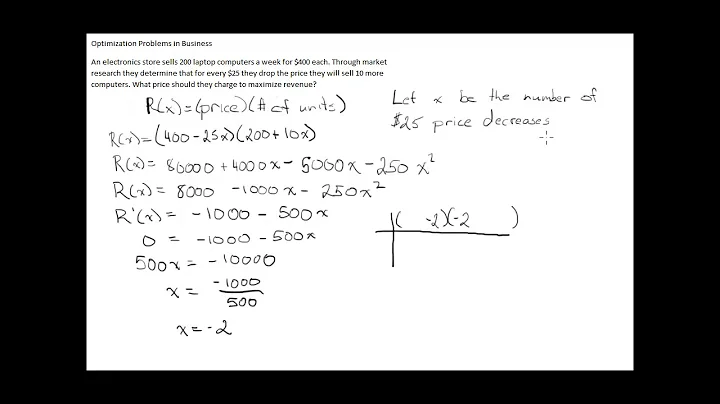 Optimization Problems in Business
An electronics store sells 200 laptop computers a week for $400 each. Through market
research they determine that for every $25 they drop the price they will sell 10 more
computers. What price should they charge to maximize revenue?
R(x)=(price)(# of units)
Let x be the number of
$25 price decreases
R(x)=(400-25x)(200+10x)
R(x)= 80000+4000x-5000x-250x²
R(x)= 8000 -1000x - 250x²
R'(x)= -1000-500x
0 = -1000-500x
500x= -10000
x= -1000/500
x=-2
( -2)(-2 )